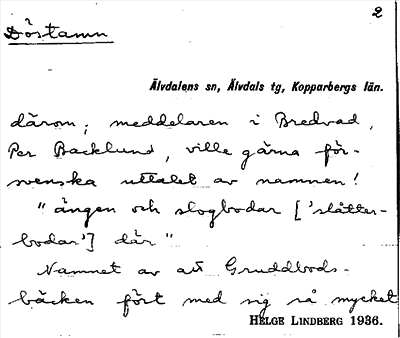 2
Döstamn
Älvdalens sn, Älvdals tg, Kopparbergs län.
därom; meddelaren i Bredvad,
Per Backlund, ville gärna för-
svenska uttalet av namnen!
"ängen och slogbodar ['slåtter-
bodar'] där"
Namnet av att Gruddbods-
bäcken fört med sig så mycket
HELGE LINDBERG 1936.